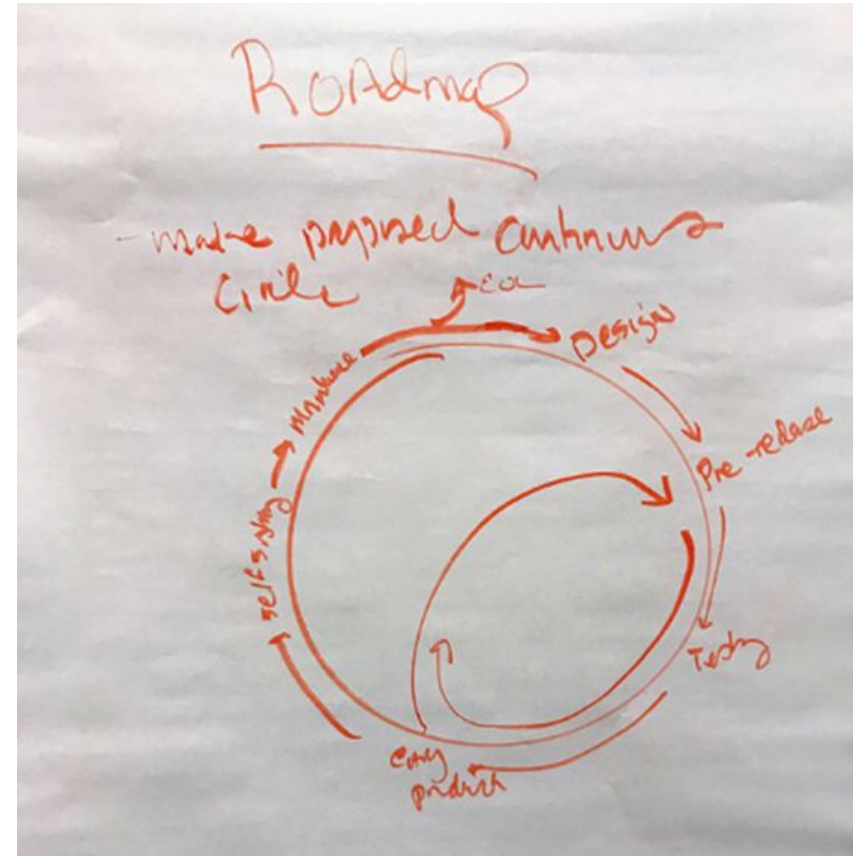 Roadmap
- make proposed continuous
circle
EOL
Design
Pre-release
Testing
early
product
Mainstream